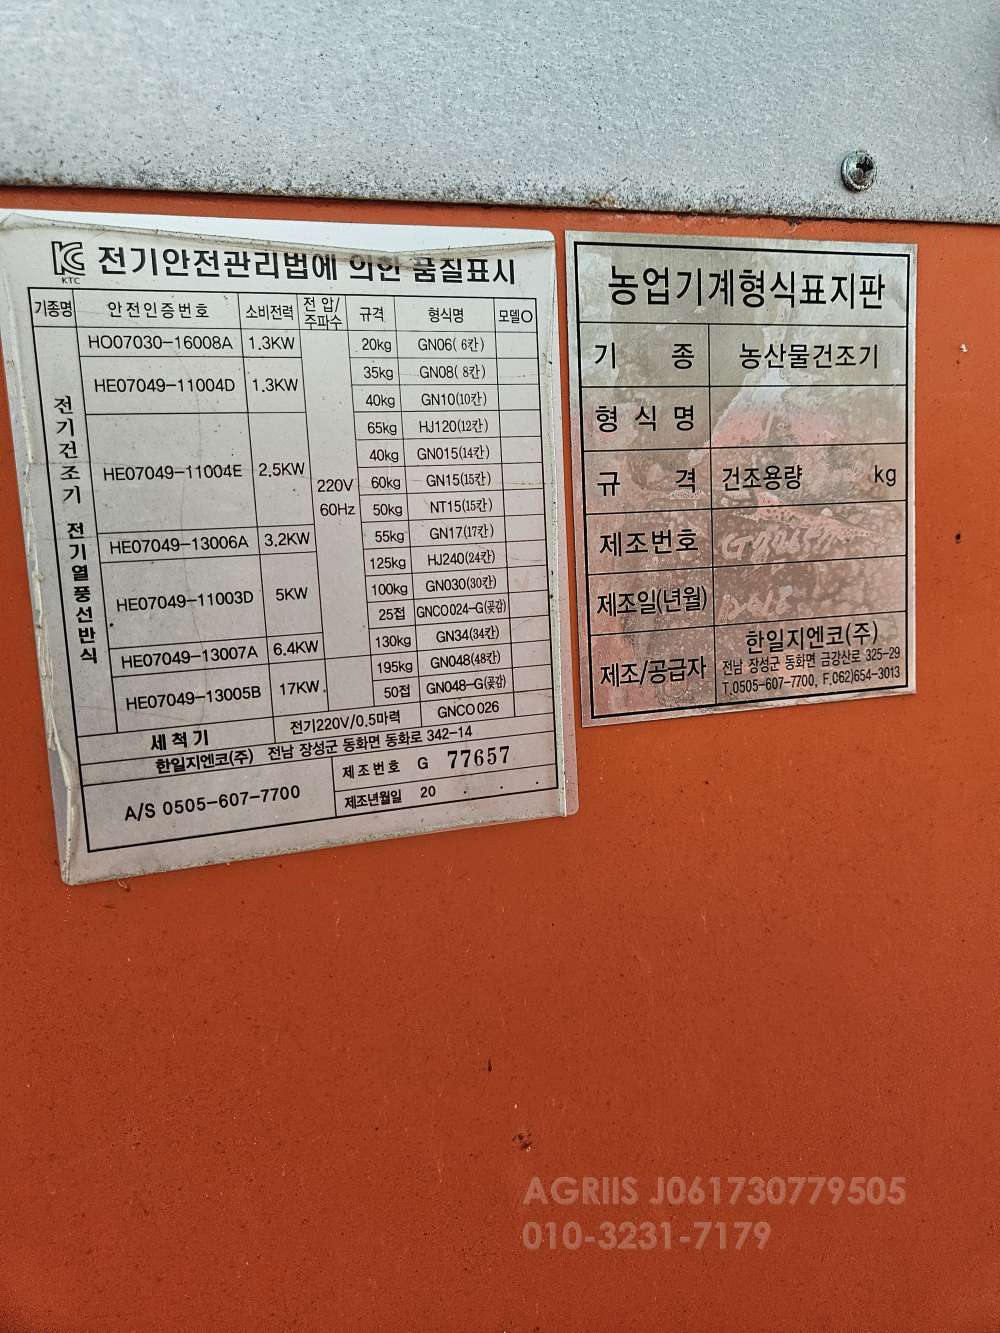 KC 전기안전관리법에 의한 품질표시
KTC
기종명 안전인증번호 소비전력 전압/주파수 규격 형식명 모델O
전기건조기 전기열풍선반식
220V
60Hz
HO07030-16008A 1.3KW 20kg GN06(6칸)
HE07049-11004D 1.3KW 35kg GN08(8칸)
40kg GN10(10칸)
HE07049-11004E 2.5KW 65kg HJ120(12칸)
40kg GN015(14칸)
60kg GN15(15칸)
50kg NT15(15칸)
HE07049-13006A 3.2KW 55kg GN17(17칸)
HE07049-11003D 5KW 125kg HJ240(24칸)
100kg GN030(30칸)
25접 GNCO024-G(꽂감)
HE07049-13007A 6.4KW 130kg GN34(34칸)
HE07049-13005B 17KW 195kg GN048(48칸)
50접 GN048-G(꽂감)
세척기 전기220V/0.5마력 GNCO026
한일지엔코(주) 전남 장성군 동화면 동화로 342-14
A/S 0505-607-7700
제조번호 G 77657
제조년월일 20 . .
농업기계형식표지판
기 종 농산물건조기
형식명
규 격 건조용량 kg
제조번호
제조일(년월) 2018
제조/공급자 한일지엔코(주)
전남 장성군 동화면 금강산로 325-29
T.0505-607-7700, F.062)654-3013
AGRIIS J061730779505
010-3231-7179